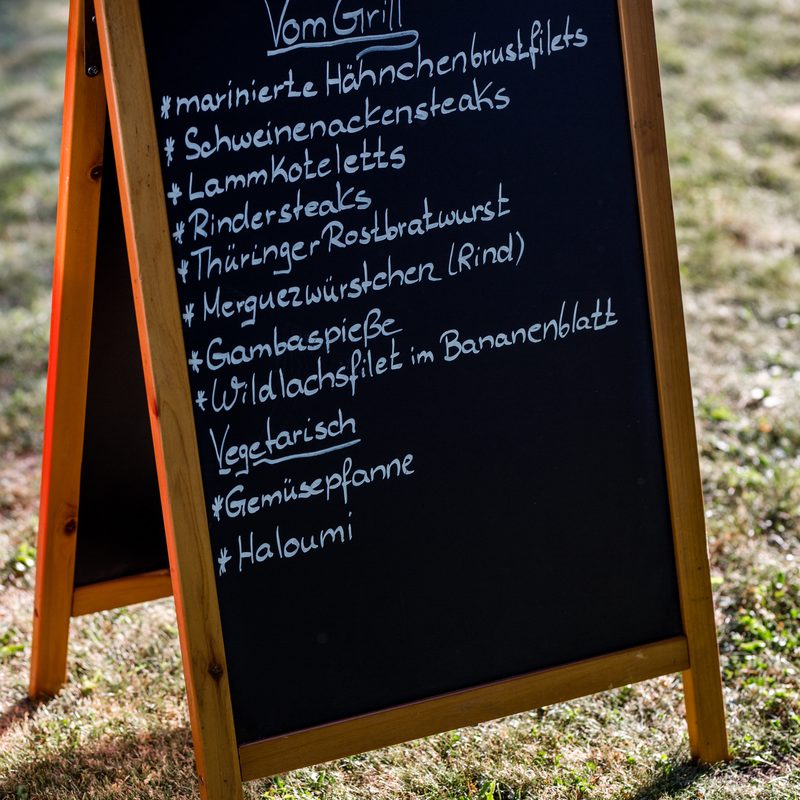 Vom Grill
* marinierte Hähnchenbrustfilets
* Schweinenackensteaks
* Lammkoteletts
* Rindersteaks
* Thüringer Rostbratwurst
* Merguezwürstchen (Rind)
* Gambaspieße
* Wildlachsfilet im Bananenblatt
Vegetarisch
* Gemüsepfanne
* Haloumi